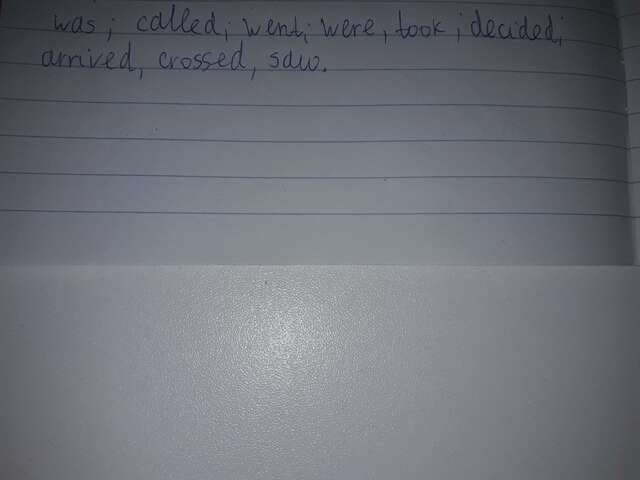 was; called; went; were, took; decided;
arrived, crossed, saw.